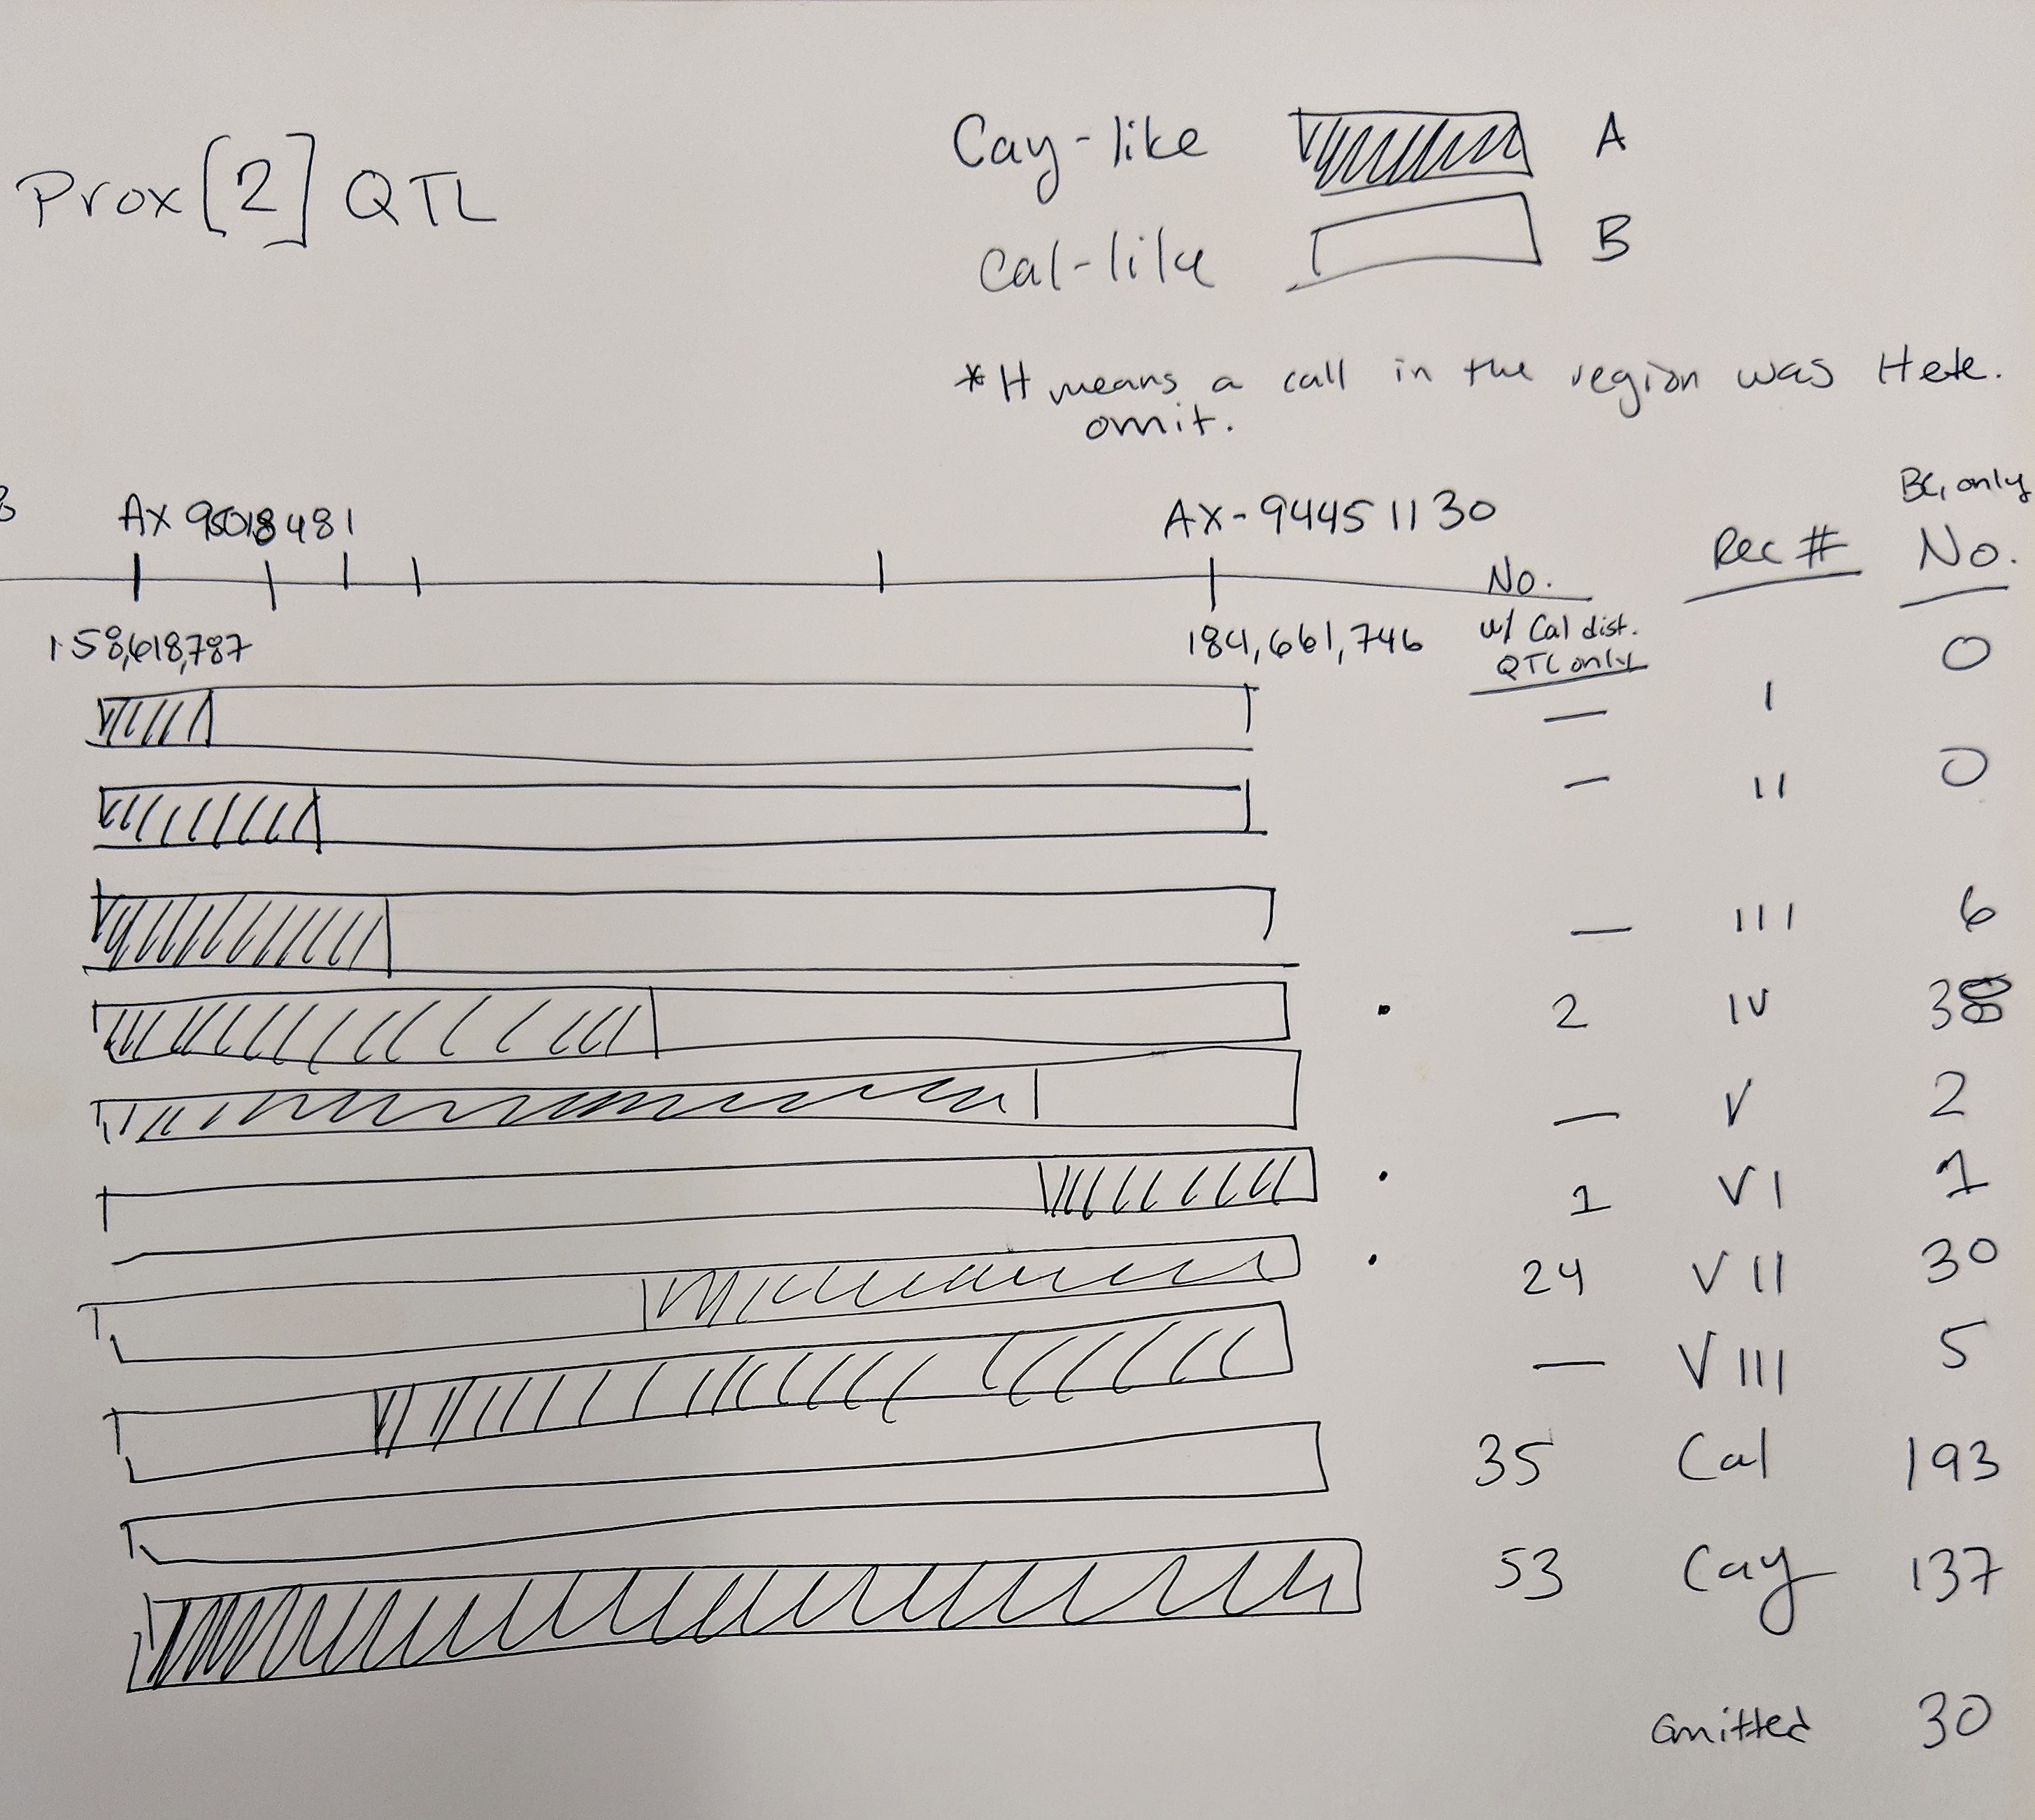 Prox [2] QTL
Cay-like A
Cal-like B
*H means a call in the region was Hete.
omit.
AX 95018481
AX-94451130
158,618,787
184,661,746
No.
w/ Cal dist.
QTL only
Rec #
BC1 only
No.
— I 0
— II 0
— III 6
2 IV 38
— V 2
1 VI 1
24 VII 30
— VIII 5
35 Cal 193
53 Cay 137
omitted 30